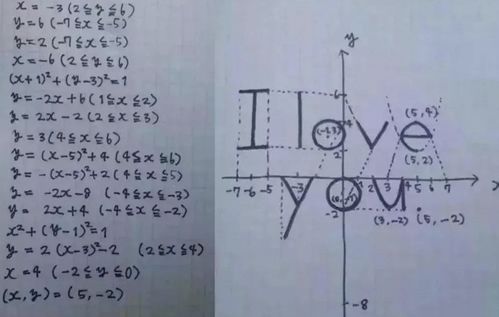 x = -3 (2 ≦ y ≦ 6)
y = 6 (-7 ≦ x ≦ -5)
y = 2 (-7 ≦ x ≦ -5)
x = -6 (2 ≦ y ≦ 6)
(x+1)² + (y-3)² = 1
y = -2x + 6 (1 ≦ x ≦ 2)
y = 2x - 2 (2 ≦ x ≦ 3)
y = 3 (4 ≦ x ≦ 6)
y = (x-5)² + 4 (4 ≦ x ≦ 6)
y = -(x-5)² + 2 (4 ≦ x ≦ 5)
y = -2x - 8 (-4 ≦ x ≦ -3)
y = 2x + 4 (-4 ≦ x ≦ -2)
x² + (y-1)² = 1
y = 2(x-3)² - 2 (2 ≦ x ≦ 4)
x = 4 (-2 ≦ y ≦ 0)
(x, y) = (5, -2)
y
6
(5,4)
4
I love
2
(5,2)
-7 -6 -5 -3 1 2 3 4 5 6 7 x
you
-2
(3, -2) (5, -2)
-8